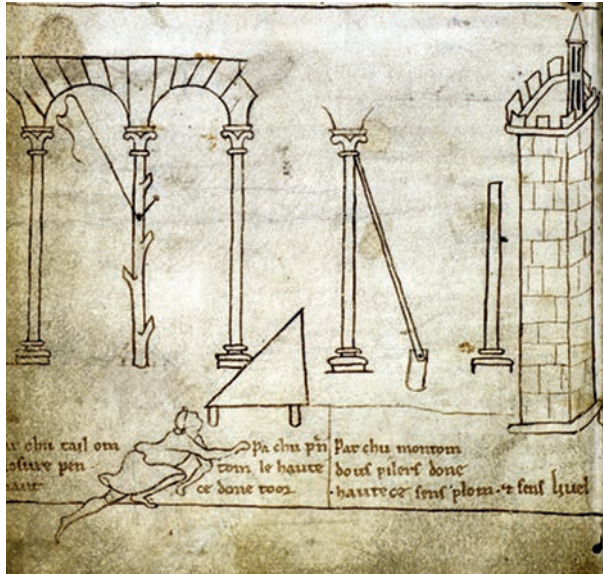 ar chu tail om
osure pen
ant
Pa chu pñ
tom le haute
ce done toor
Par chu montom
dous pilers done
hautece sens plom · ⁊ sens livel